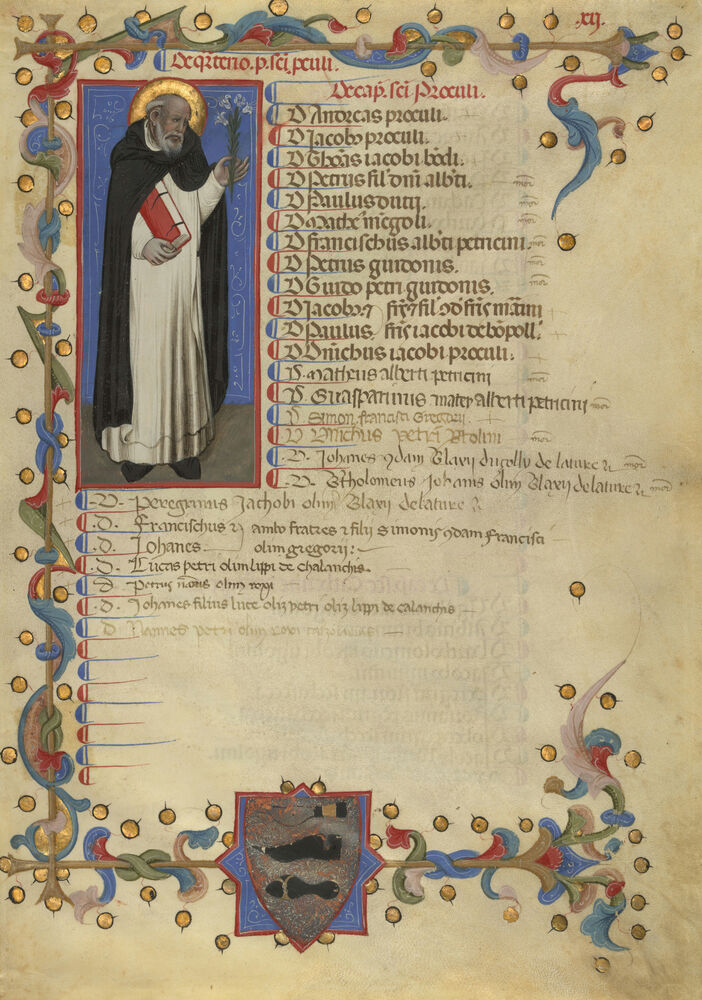 .xij.
De qrterio. p. sci. pculi.
De cap. sci Proculi.
D Andreas proculi.
D Jacobus proculi.
D Thoas iacobi bodi.
D Petrus fil dni albti. mor
D Paulus ducij. mor
D Mathe mēgoli. mor
D francischus albti petricini. mor
D Petrus guidonis. mor
D Guido petri guidonis. mor
D Jacobus
D Paulus. iacobi
D Dnichus iacobi proculi.
D. Matheus alberti petricini mor
D. Guasparinus matey alberti petricini mor
D Simon francisci Gregorij.
D petri mor
D. Johanes qdam Blaxij de lature mor
D. Btholomeus Johanis olim Blaxij de lature mor
D. Peregrinus Jachobi olim Blaxij de lature
.D. Francischus ambo fratres filij Simonis qdam francisci
.D. Johanes olim gregorij:
.D. Lucas petri olim lippi de Chalanchis
.D. Petrus olim
.D. Johanes filius luce oliz petri oliz lippi de calanchis
D petri olim